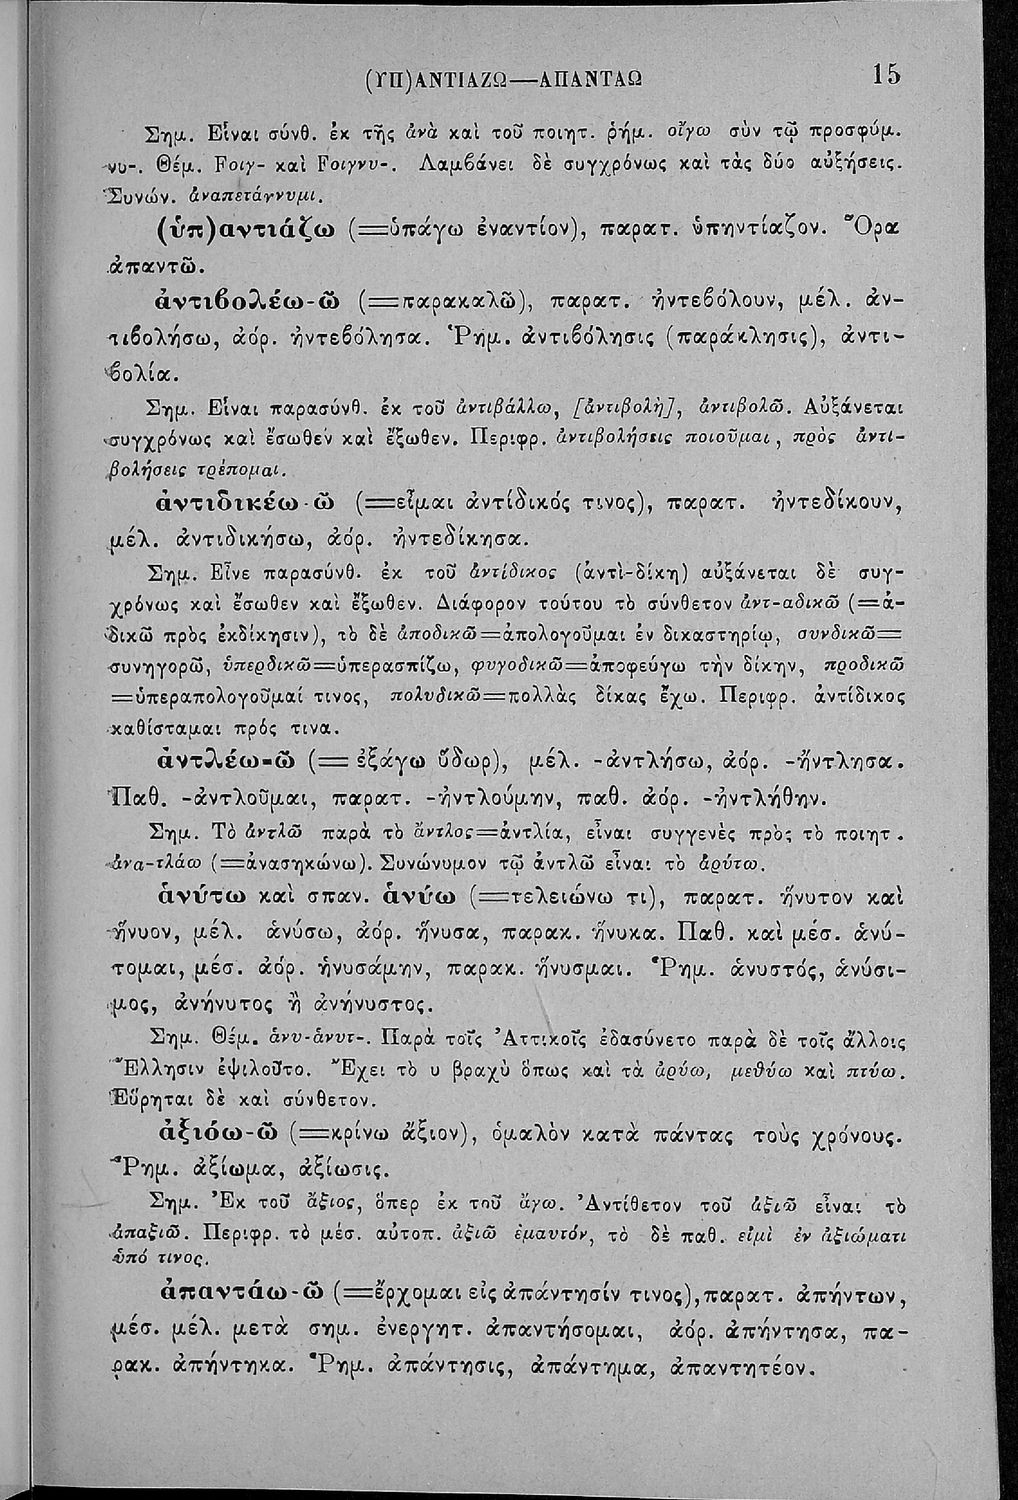 (ΥΠ)ΑΝΤΙΑΖΩ—ΑΠΑΝΤΑΩ 15
Σημ. Εἶναι σύνθ. ἐκ τῆς ἀνὰ καὶ τοῦ ποιητ. ῥήμ. οἴγω σὺν τῷ προσφύμ.
νυ-. Θέμ. Fοιγ- καὶ Fοιγνυ-. Λαμβάνει δὲ συγχρόνως καὶ τὰς δύο αὐξήσεις.
Συνών. ἀναπετάννυμι.
(ὑπ)αντιάζω (=ὑπάγω ἐναντίον), παρατ. ὑπηντίαζον. Ὅρα
ἀπαντῶ.
ἀντιβολέω-ῶ (=παρακαλῶ), παρατ. ἠντεβόλουν, μέλ. ἀν-
τιβολήσω, ἀόρ. ἠντεβόλησα. Ῥημ. ἀντιβόλησις (παράκλησις), ἀντι-
βολία.
Σημ. Εἶναι παρασύνθ. ἐκ τοῦ ἀντιβάλλω, [ἀντιβολή], ἀντιβολῶ. Αὐξάνεται
συγχρόνως καὶ ἔσωθεν καὶ ἔξωθεν. Περιφρ. ἀντιβολήσεις ποιοῦμαι, πρὸς ἀντι-
βολήσεις τρέπομαι.
ἀντιδικέω-ῶ (=εἶμαι ἀντίδικός τινος), παρατ. ἠντεδίκουν,
μέλ. ἀντιδικήσω, ἀόρ. ἠντεδίκησα.
Σημ. Εἶνε παρασύνθ. ἐκ τοῦ ἀντίδικος (ἀντὶ-δίκη) αὐξάνεται δὲ συγ-
χρόνως καὶ ἔσωθεν καὶ ἔξωθεν. Διάφορον τούτου τὸ σύνθετον ἀντ-αδικῶ (=ἀ-
δικῶ πρὸς ἐκδίκησιν), τὸ δὲ ἀποδικῶ=ἀπολογοῦμαι ἐν δικαστηρίῳ, συνδικῶ=
συνηγορῶ, ὑπερδικῶ=ὑπερασπίζω, φυγοδικῶ=ἀποφεύγω τὴν δίκην, προδικῶ
=ὑπεραπολογοῦμαί τινος, πολυδικῶ=πολλὰς δίκας ἔχω. Περιφρ. ἀντίδικος
καθίσταμαι πρός τινα.
ἀντλέω-ῶ (= ἐξάγω ὕδωρ), μέλ. -ἀντλήσω, ἀόρ. -ἤντλησα.
Παθ. -ἀντλοῦμαι, παρατ. -ἠντλούμην, παθ. ἀόρ. -ἠντλήθην.
Σημ. Τὸ ἀντλῶ παρὰ τὸ ἄντλος=ἀντλία, εἶναι συγγενὲς πρὸς τὸ ποιητ.
ἀνα-τλάω (=ἀνασηκώνω). Συνώνυμον τῷ ἀντλῶ εἶναι τὸ ἀρύτω.
ἁνύτω καὶ σπαν. ἁνύω (=τελειώνω τι), παρατ. ἥνυτον καὶ
ἥνυον, μέλ. ἁνύσω, ἀόρ. ἥνυσα, παρακ. ἥνυκα. Παθ. καὶ μέσ. ἁνύ-
τομαι, μέσ. ἀόρ. ἡνυσάμην, παρακ. ἥνυσμαι. Ῥημ. ἁνυστός, ἁνύσι-
μος, ἀνήνυτος ἢ ἀνήνυστος.
Σημ. Θέμ. ἁνυ-ἁνυτ-. Παρὰ τοῖς Ἀττικοῖς ἐδασύνετο παρὰ δὲ τοῖς ἄλλοις
Ἕλλησιν ἐψιλοῦτο. Ἔχει τὸ υ βραχὺ ὅπως καὶ τὰ ἀρύω, μεθύω καὶ πτύω.
Εὕρηται δὲ καὶ σύνθετον.
ἀξιόω-ῶ (=κρίνω ἄξιον), ὁμαλὸν κατὰ πάντας τοὺς χρόνους.
Ῥημ. ἀξίωμα, ἀξίωσις.
Σημ. Ἐκ τοῦ ἄξιος, ὅπερ ἐκ τοῦ ἄγω. Ἀντίθετον τοῦ ἀξιῶ εἶναι τὸ
ἀπαξιῶ. Περιφρ. τὸ μέσ. αὐτοπ. ἀξιῶ ἐμαυτόν, τὸ δὲ παθ. εἰμὶ ἐν ἀξιώματι
ὑπό τινος.
ἀπαντάω-ῶ (=ἔρχομαι εἰς ἀπάντησίν τινος), παρατ. ἀπήντων,
μέσ. μέλ. μετὰ σημ. ἐνεργητ. ἀπαντήσομαι, ἀόρ. ἀπήντησα, πα-
ρακ. ἀπήντηκα. Ῥημ. ἀπάντησις, ἀπάντημα, ἀπαντητέον.